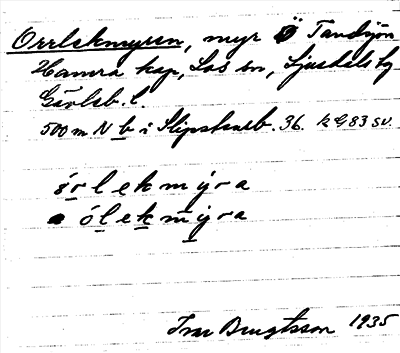 Orrlekmyren, myr Ö Tandsjön
Hamra kap, Los sn, Ljusdals tg
Gävleb. l.
500 m N b i Slipsharb. 36. k G 83 SV.
órlekmýra
ólekmýra
Ivar Bengtsson 1935